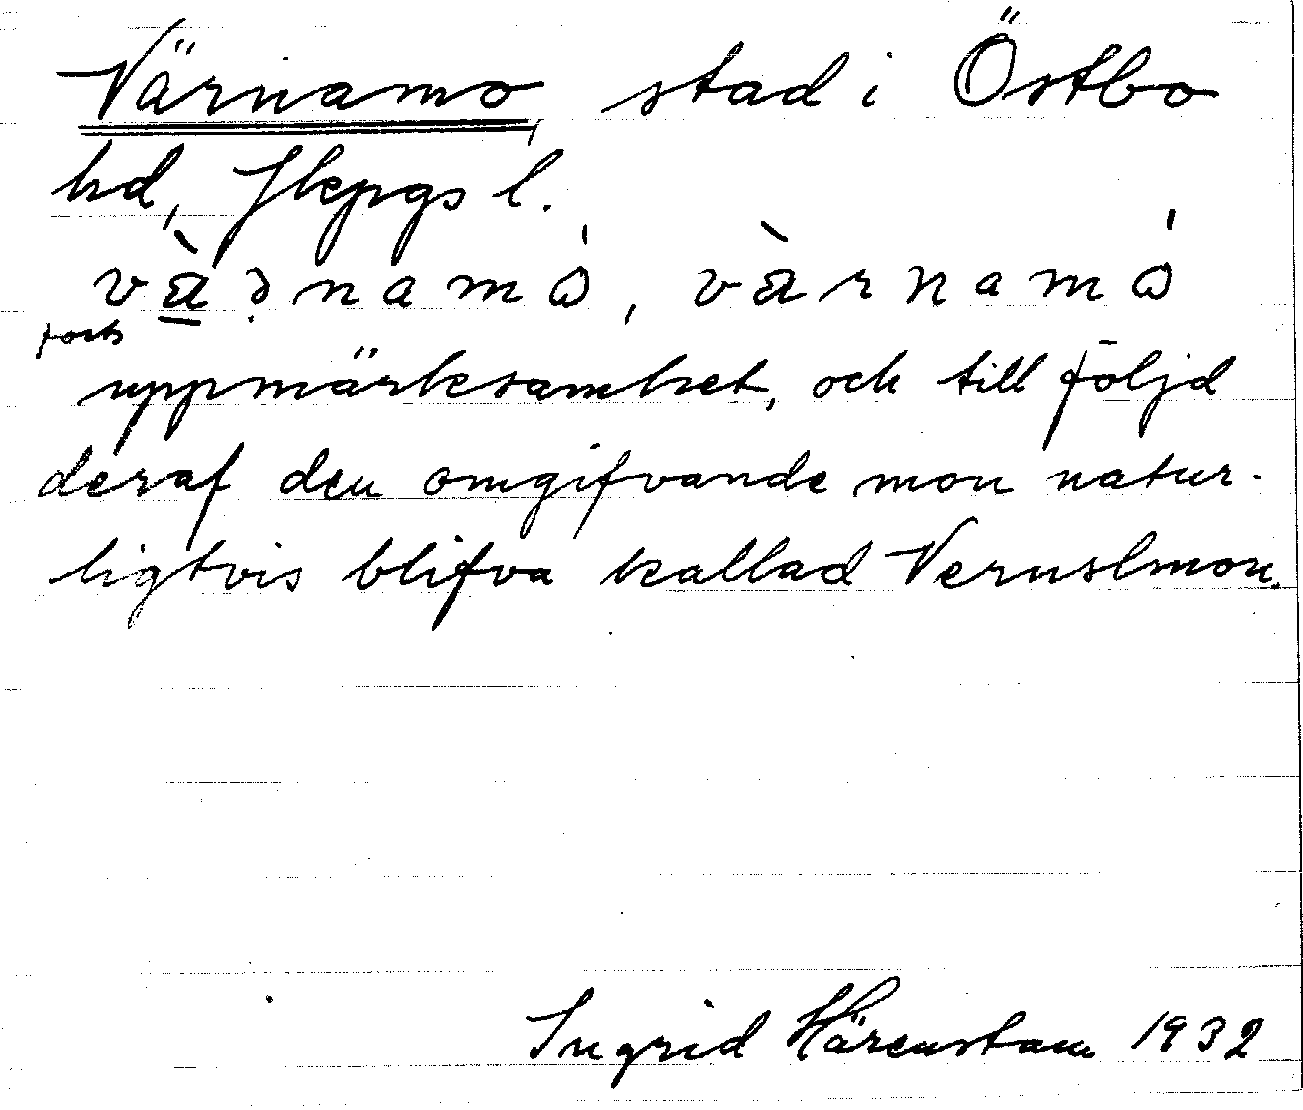 Värnamo, stad i Östbo
hd, Jkpgs l.
värnamo, värnamo
forts
uppmärksamhet, och till följd
deraf den omgifvande mon natur-
ligtvis blifva kallad Vernslmon.
Ingrid Härenstam 1932